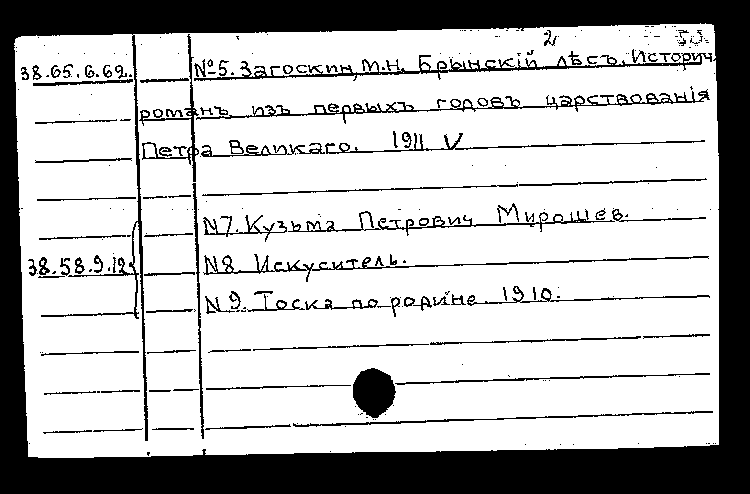 2
38.65.6.62. №5. Загоскин, М.Н. Брынскій лѣсъ. Историч.
романъ изъ первыхъ годовъ царствованія
Петра Великаго. 1911 V
N7. Кузьма Петрович Мирошев.
38.58.9.12 N8. Искуситель.
N9. Тоска по родине. 1910.